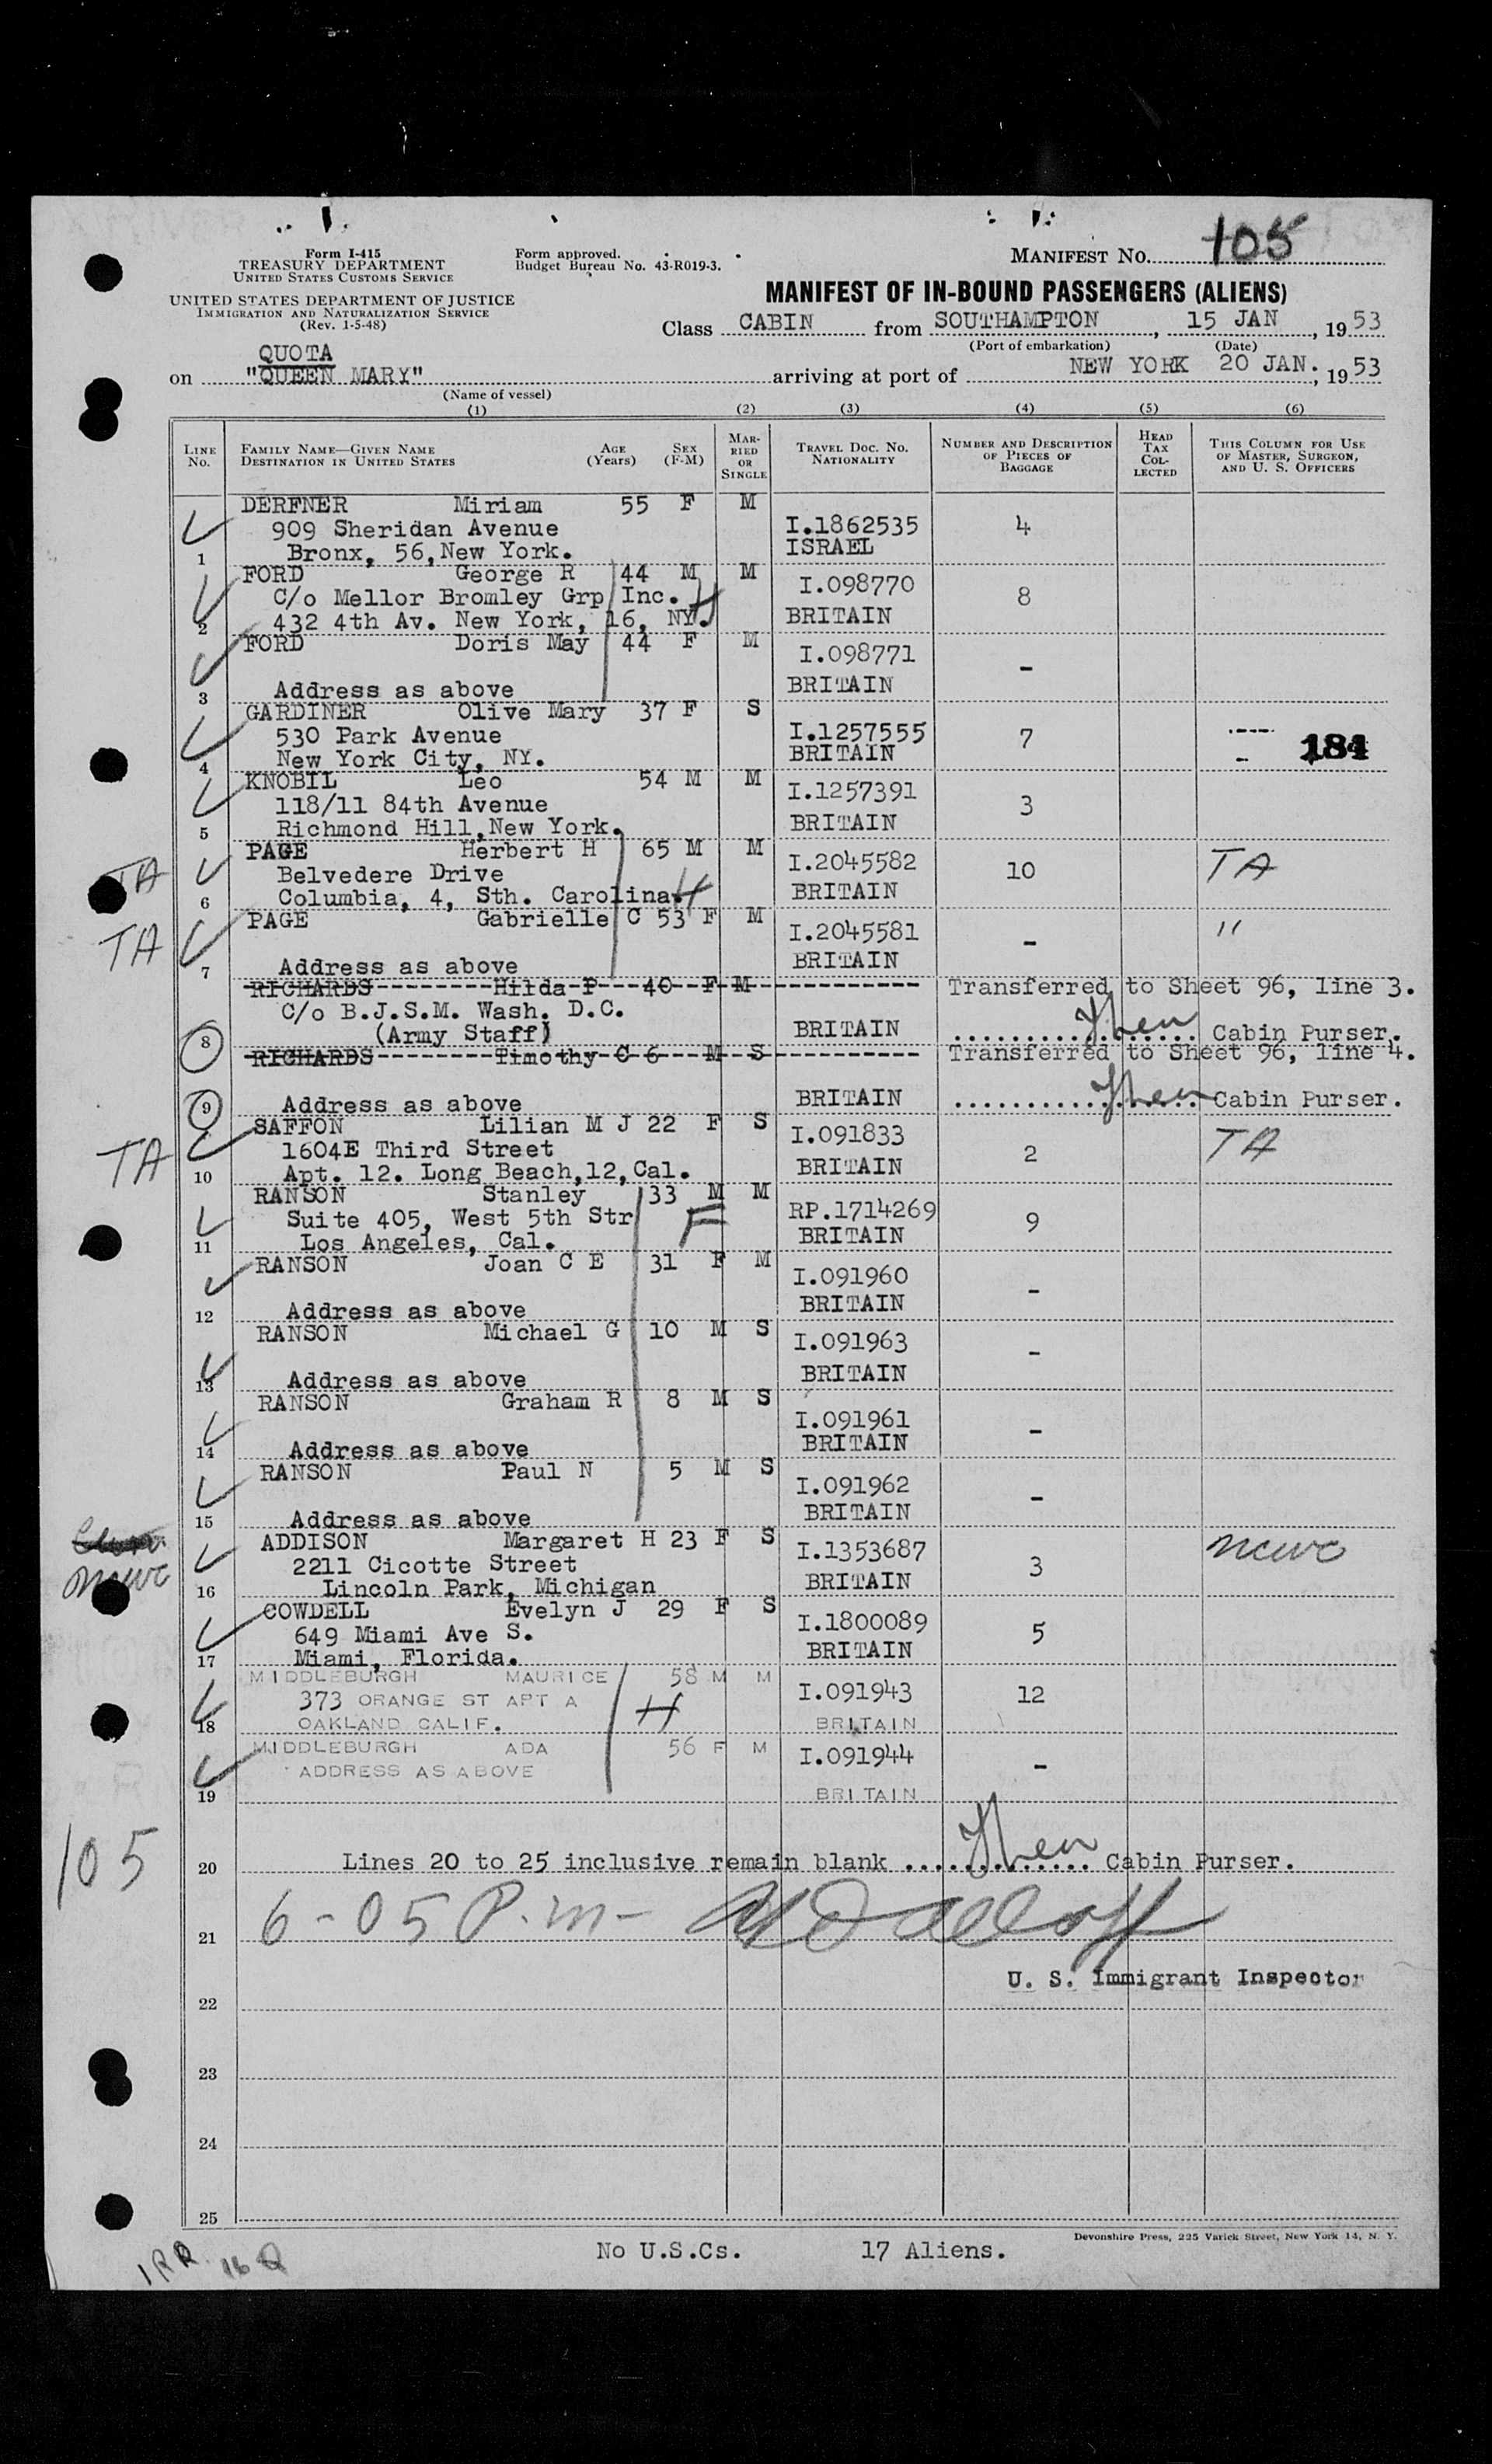 Form I-415
TREASURY DEPARTMENT
UNITED STATES CUSTOMS SERVICE
UNITED STATES DEPARTMENT OF JUSTICE
IMMIGRATION AND NATURALIZATION SERVICE
(Rev. 1-5-48)
Form approved.
Budget Bureau No. 43-R019-3.
MANIFEST No. 105
MANIFEST OF IN-BOUND PASSENGERS (ALIENS)
Class CABIN from SOUTHAMPTON, 15 JAN, 1953
(Port of embarkation) (Date)
QUOTA
on "QUEEN MARY" arriving at port of NEW YORK 20 JAN., 1953
(Name of vessel)
(1) (2) (3) (4) (5) (6)
LINE No. FAMILY NAME—GIVEN NAME DESTINATION IN UNITED STATES AGE (Years) SEX (F-M) MARRIED OR SINGLE TRAVEL DOC. NO. NATIONALITY NUMBER AND DESCRIPTION OF PIECES OF BAGGAGE HEAD TAX COLLECTED THIS COLUMN FOR USE OF MASTER, SURGEON, AND U. S. OFFICERS
DERFNER Miriam 55 F M
909 Sheridan Avenue I.1862535 4
1 Bronx, 56, New York. ISRAEL
FORD George R 44 M M I.098770
C/o Mellor Bromley Grp Inc. H 8
2 432 4th Av. New York, 16, NY. BRITAIN
FORD Doris May 44 F M I.098771
-
3 Address as above BRITAIN
GARDINER Olive Mary 37 F S
530 Park Avenue I.1257555 7 184
4 New York City, NY. BRITAIN
KNOBIL Leo 54 M M I.1257391
118/11 84th Avenue 3
5 Richmond Hill, New York. BRITAIN
PAGE Herbert H 65 M M I.2045582
TA Belvedere Drive 10 TA
6 Columbia, 4, Sth. Carolina. H BRITAIN
PAGE Gabrielle C 53 F M I.2045581 "
TA -
7 Address as above BRITAIN
RICHARDS Hilda P 40 F M Transferred to Sheet 96, line 3.
C/o B.J.S.M. Wash. D.C.
8 (Army Staff) BRITAIN Cabin Purser.
RICHARDS Timothy C 6 M S Transferred to Sheet 96, line 4.
9 Address as above BRITAIN Cabin Purser.
SAFFON Lilian M J 22 F S I.091833
TA 1604E Third Street 2 TA
10 Apt. 12. Long Beach, 12, Cal. BRITAIN
RANSON Stanley 33 M M RP.1714269
Suite 405, West 5th Str F 9
11 Los Angeles, Cal. BRITAIN
RANSON Joan C E 31 F M I.091960
-
12 Address as above BRITAIN
RANSON Michael G 10 M S I.091963
-
13 Address as above BRITAIN
RANSON Graham R 8 M S I.091961
-
14 Address as above BRITAIN
RANSON Paul N 5 M S I.091962
-
15 Address as above BRITAIN
ADDISON Margaret H 23 F S I.1353687
2211 Cicotte Street 3
16 Lincoln Park, Michigan BRITAIN
COWDELL Evelyn J 29 F S I.1800089
649 Miami Ave S. 5
17 Miami, Florida. BRITAIN
MIDDLEBURGH MAURICE 58 M M I.091943
373 ORANGE ST APT A H 12
18 OAKLAND CALIF. BRITAIN
MIDDLEBURGH ADA 56 F M I.091944
ADDRESS AS ABOVE -
19 BRITAIN
105
20 Lines 20 to 25 inclusive remain blank Cabin Purser.
21 6-05 P.m-
U. S. Immigrant Inspector
22
23
24
25
Devonshire Press, 225 Varick Street, New York 14, N. Y.
No U.S.Cs. 17 Aliens.